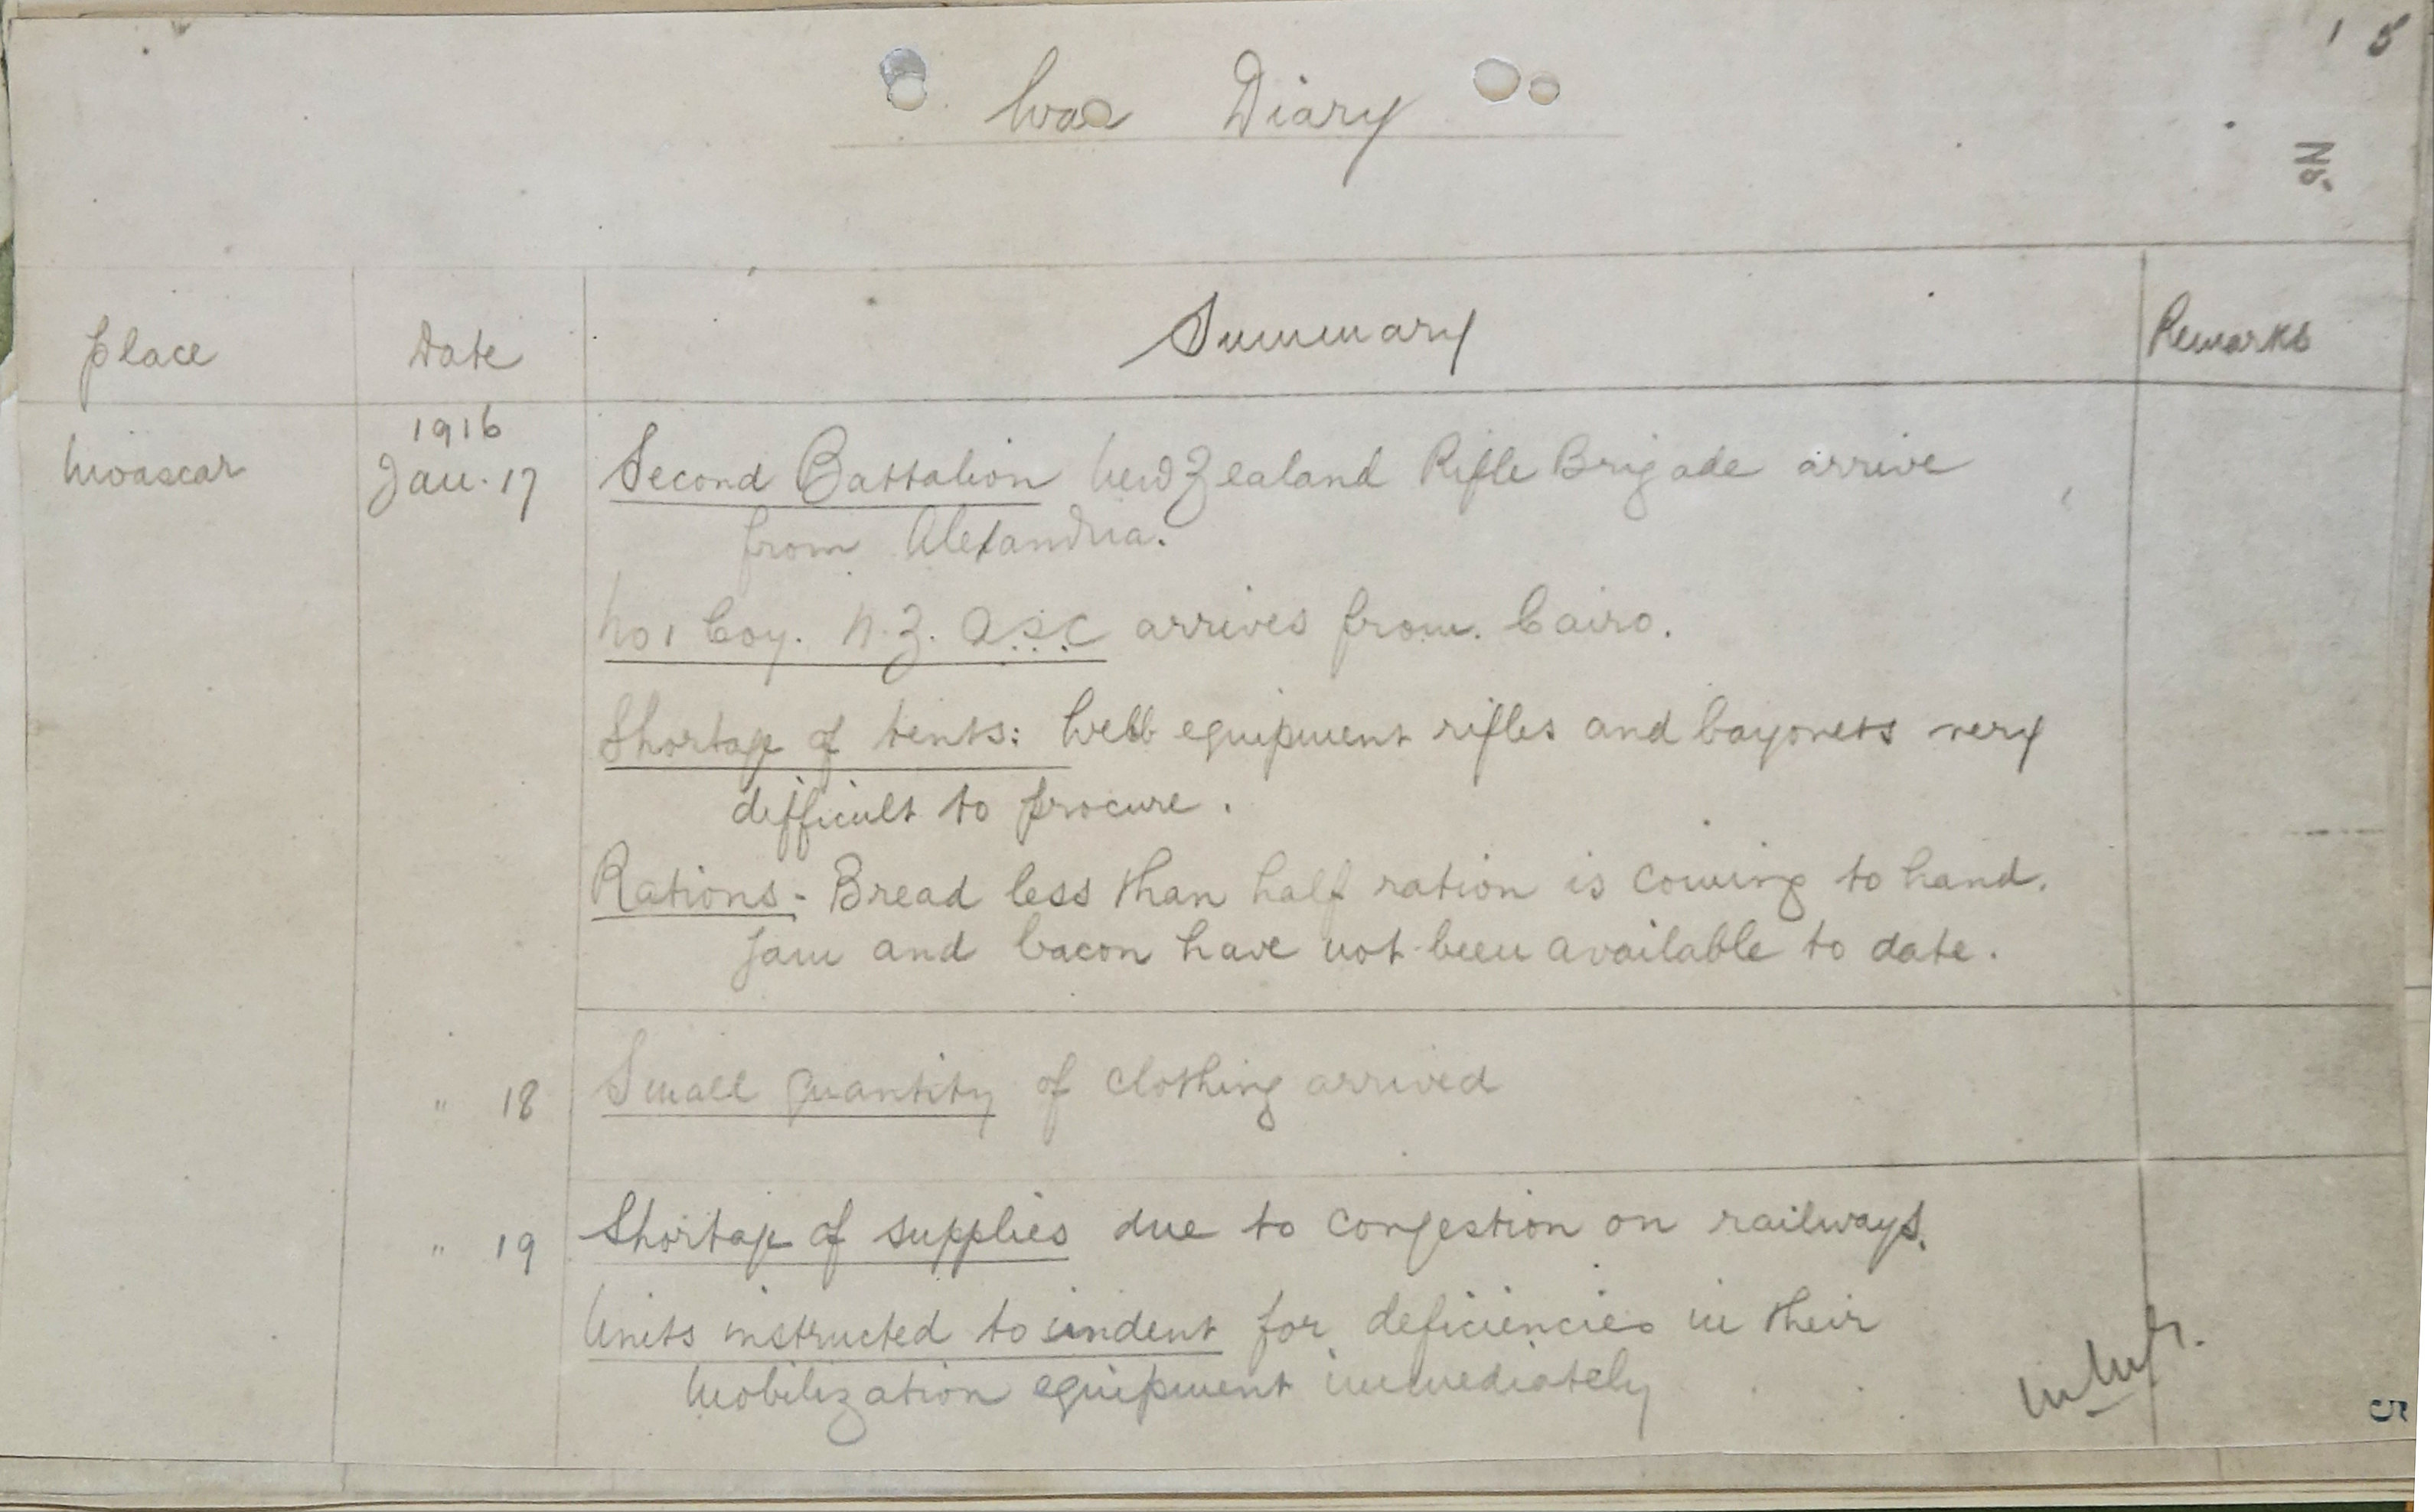 5
No
War Diary
Place Date Summary Remarks
1916
Moascar Jan. 17 Second Battalion New Zealand Rifle Brigade arrive
from Alexandria.
No 1 Coy. N.Z. A.S.C arrives from Cairo.
Shortage of tents: Webb equipment rifles and bayonets very
difficult to procure.
Rations - Bread less than half ration is coming to hand.
Jam and bacon have not been available to date.
" 18 Small quantity of clothing arrived
" 19 Shortage of supplies due to congestion on railways.
Units instructed to indent for deficiencies in their
Mobilization equipment immediately
5